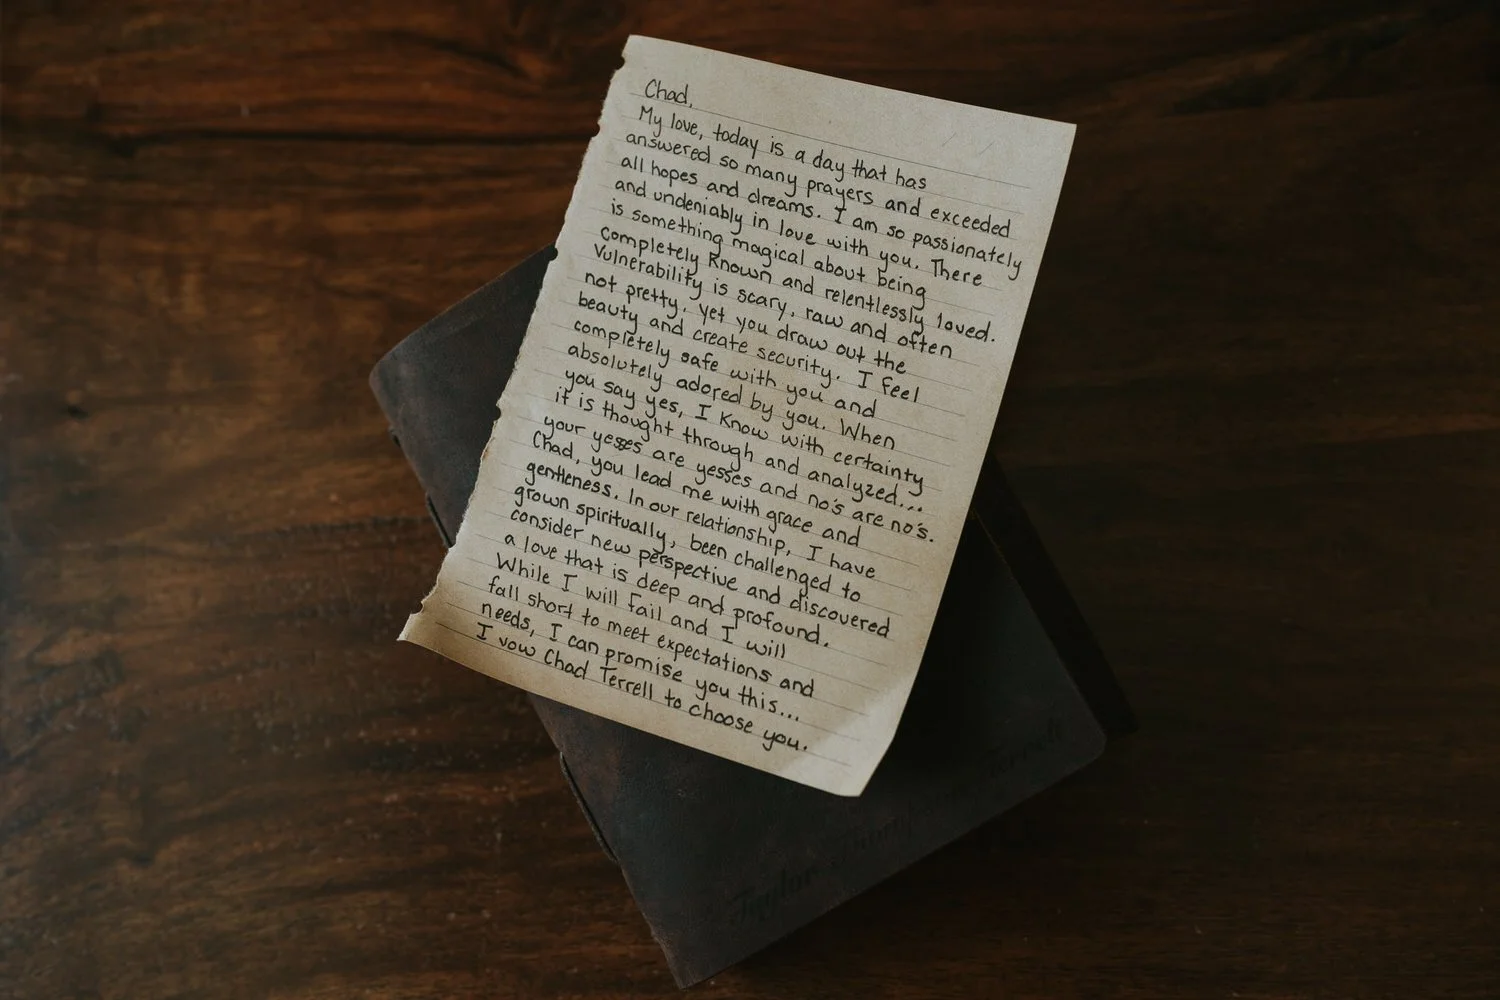 Chad,
My love, today is a day that has
answered so many prayers and exceeded
all hopes and dreams. I am so passionately
and undeniably in love with you. There
is something magical about being
completely known and relentlessly loved.
Vulnerability is scary, raw and often
not pretty, yet you draw out the
beauty and create security. I feel
completely safe with you and
absolutely adored by you. When
you say yes, I know with certainty
it is thought through and analyzed...
your yesses are yesses and no's are no's.
Chad, you lead me with grace and
gentleness. In our relationship, I have
grown spiritually, been challenged to
consider new perspective and discovered
a love that is deep and profound.
While I will fail and I will
fall short to meet expectations and
needs, I can promise you this...
I vow Chad Terrell to choose you.
Taylor Terrell